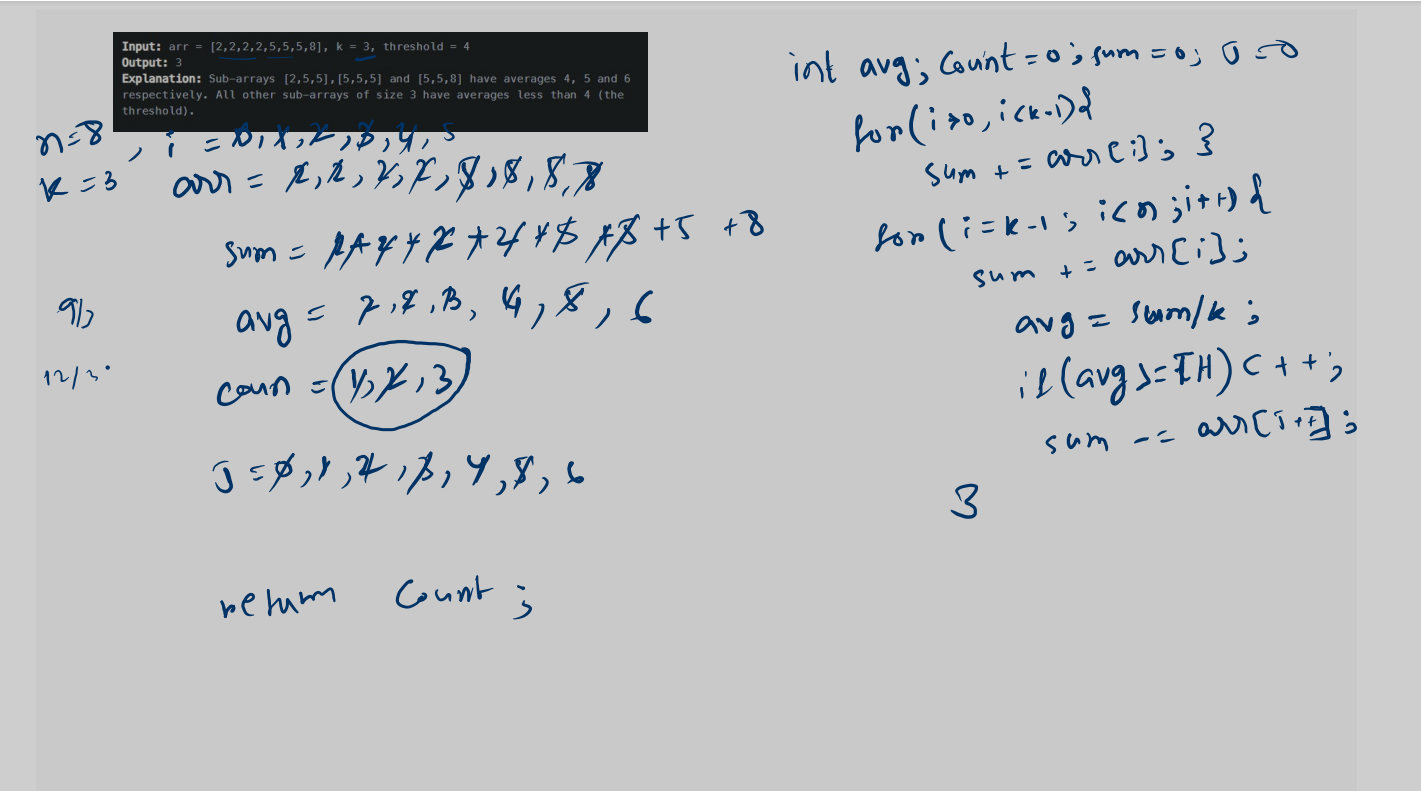 Input: arr = [2,2,2,2,5,5,5,8], k = 3, threshold = 4
Output: 3
Explanation: Sub-arrays [2,5,5],[5,5,5] and [5,5,8] have averages 4, 5 and 6
respectively. All other sub-arrays of size 3 have averages less than 4 (the
threshold).
n=8, i = 0,1,2,3,4,5
k=3 arr = 2,2,2,2,5,5,5,8
sum = 2+2+2+2+5+5+5+8
9/3 avg = 2,2,3,4,5,6
12/3 coun = 1,2,3
J=0,1,2,3,4,5,6
return Count;
int avg; Count=0; sum=0; J=0
for(i=0, i<k-1){
sum += arr[i]; }
for(i=k-1; i<n; i++){
sum += arr[i];
avg = sum/k;
if(avg>=TH) C++;
sum -= arr[J++];
3